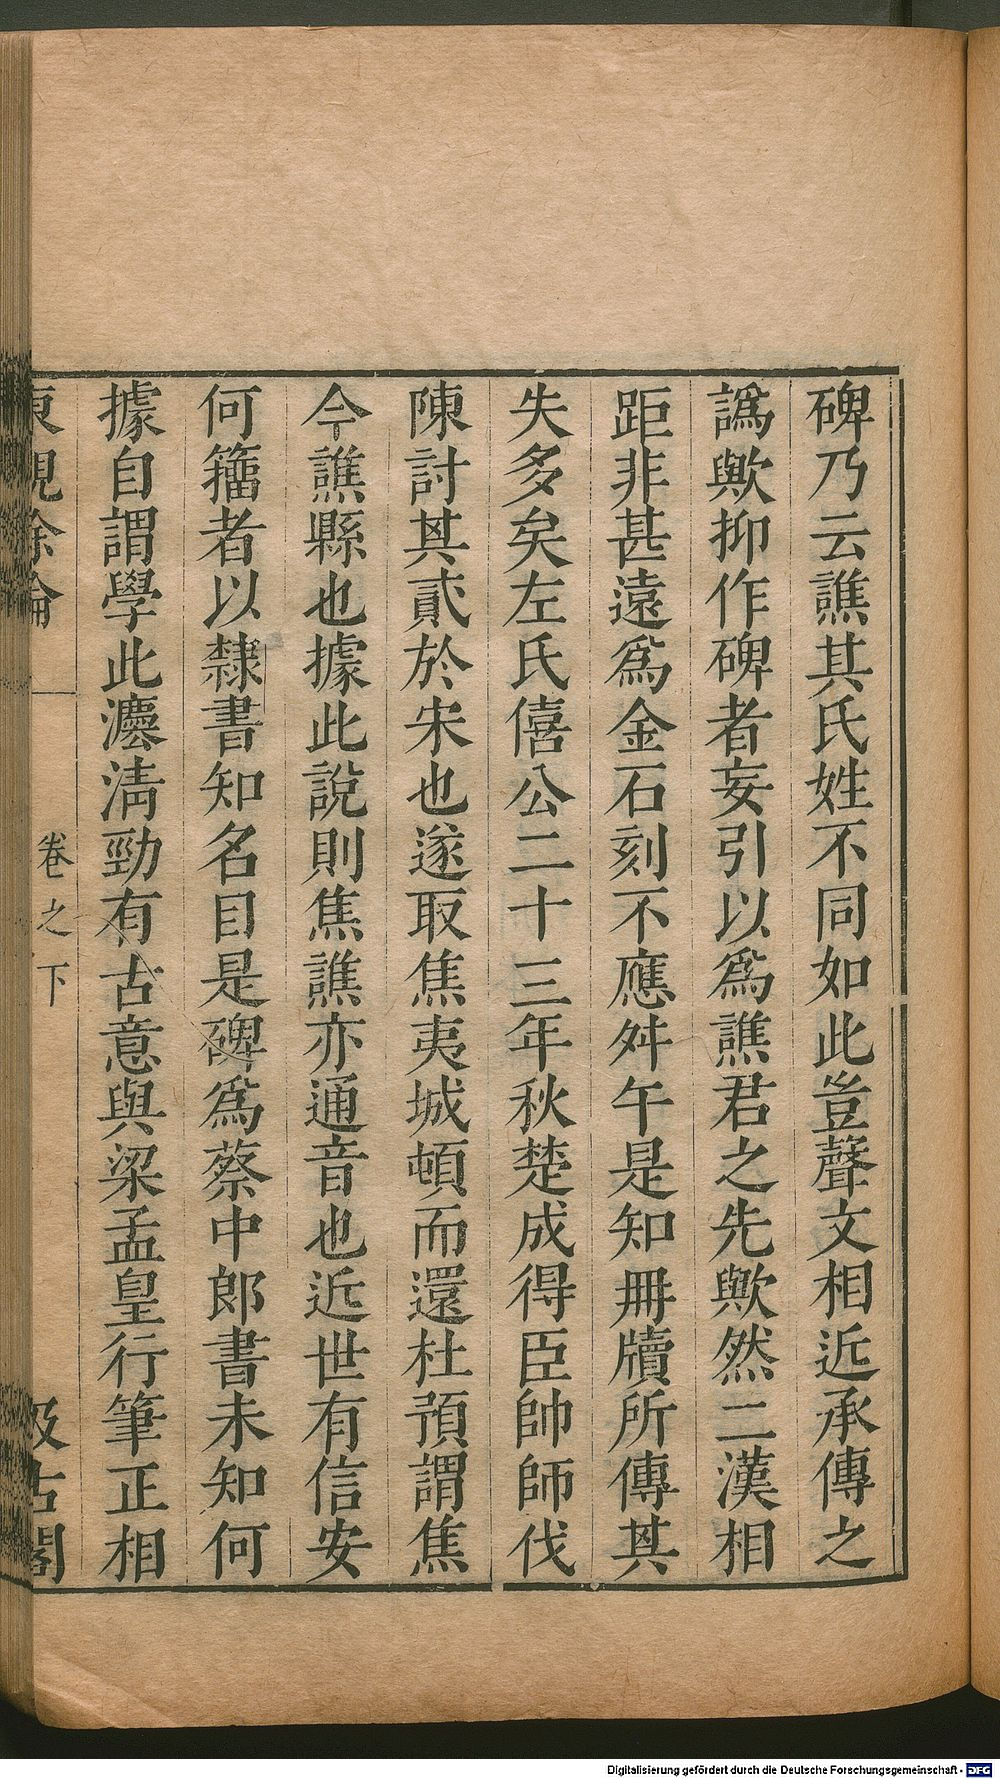 碑乃云譙其氏姓不同如此豈聲文相近承傳之
譌歟抑作碑者妄引以爲譙君之先歟然二漢相
距非甚遠爲金石刻不應舛午是知冊牘所傳其
失多矣左氏僖公二十三年秋楚成得臣帥師伐
陳討其貳於宋也遂取焦夷城頓而還杜預謂焦
今譙縣也據此說則焦譙亦通音也近世有信安
何籀者以隸書知名目是碑爲蔡中郎書未知何
據自謂學此灋淸勁有古意與梁孟皇行筆正相
東觀餘論
卷之下
汲古閣
Digitalisierung gefördert durch die Deutsche Forschungsgemeinschaft - DFG